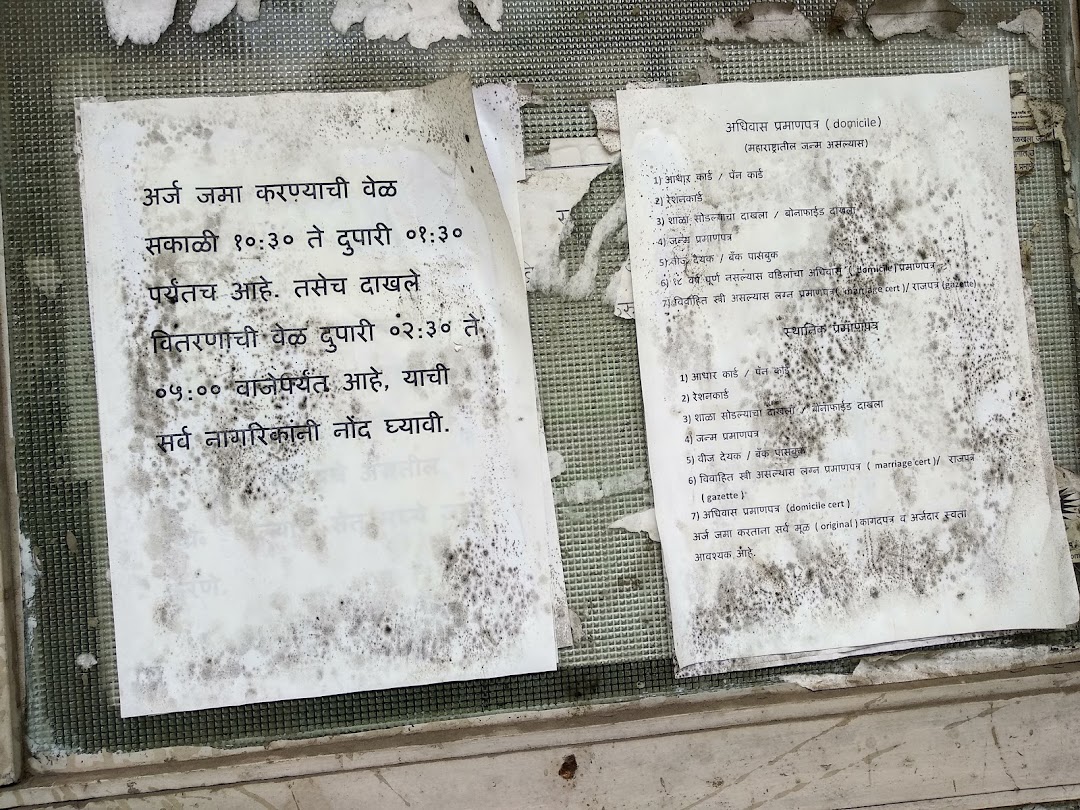 अर्ज जमा करण्याची वेळ
सकाळी १०:३० ते दुपारी ०१:३०
पर्यंतच आहे. तसेच दाखले
वितरणाची वेळ दुपारी ०२:३० ते
०५:०० वाजेपर्यंत आहे, याची
सर्व नागरिकांनी नोंद घ्यावी.
अधिवास प्रमाणपत्र ( domicile)
(महाराष्ट्रातील जन्म असल्यास)
1) आधार कार्ड / पॅन कार्ड
2) रेशनकार्ड
3) शाळा सोडल्याचा दाखला / बोनाफाईड दाखला
4) जन्म प्रमाणपत्र
5) वीज देयक / बँक पासबुक
6) १८ वर्ष पूर्ण नसल्यास वडिलांचा अधिवास ( domicile ) प्रमाणपत्र
7) विवाहित स्त्री असल्यास लग्न प्रमाणपत्र ( marriage cert )/ राजपत्र (gazette)
स्थानिक प्रमाणपत्र
1) आधार कार्ड / पॅन कार्ड
2) रेशनकार्ड
3) शाळा सोडल्याचा दाखला / बोनाफाईड दाखला
4) जन्म प्रमाणपत्र
5) वीज देयक / बँक पासबुक
6) विवाहित स्त्री असल्यास लग्न प्रमाणपत्र ( marriage cert )/ राजपत्र
( gazette )
7) अधिवास प्रमाणपत्र (domicile cert )
अर्ज जमा करताना सर्व मूळ ( original ) कागदपत्र व अर्जदार स्वता
आवश्यक आहे.